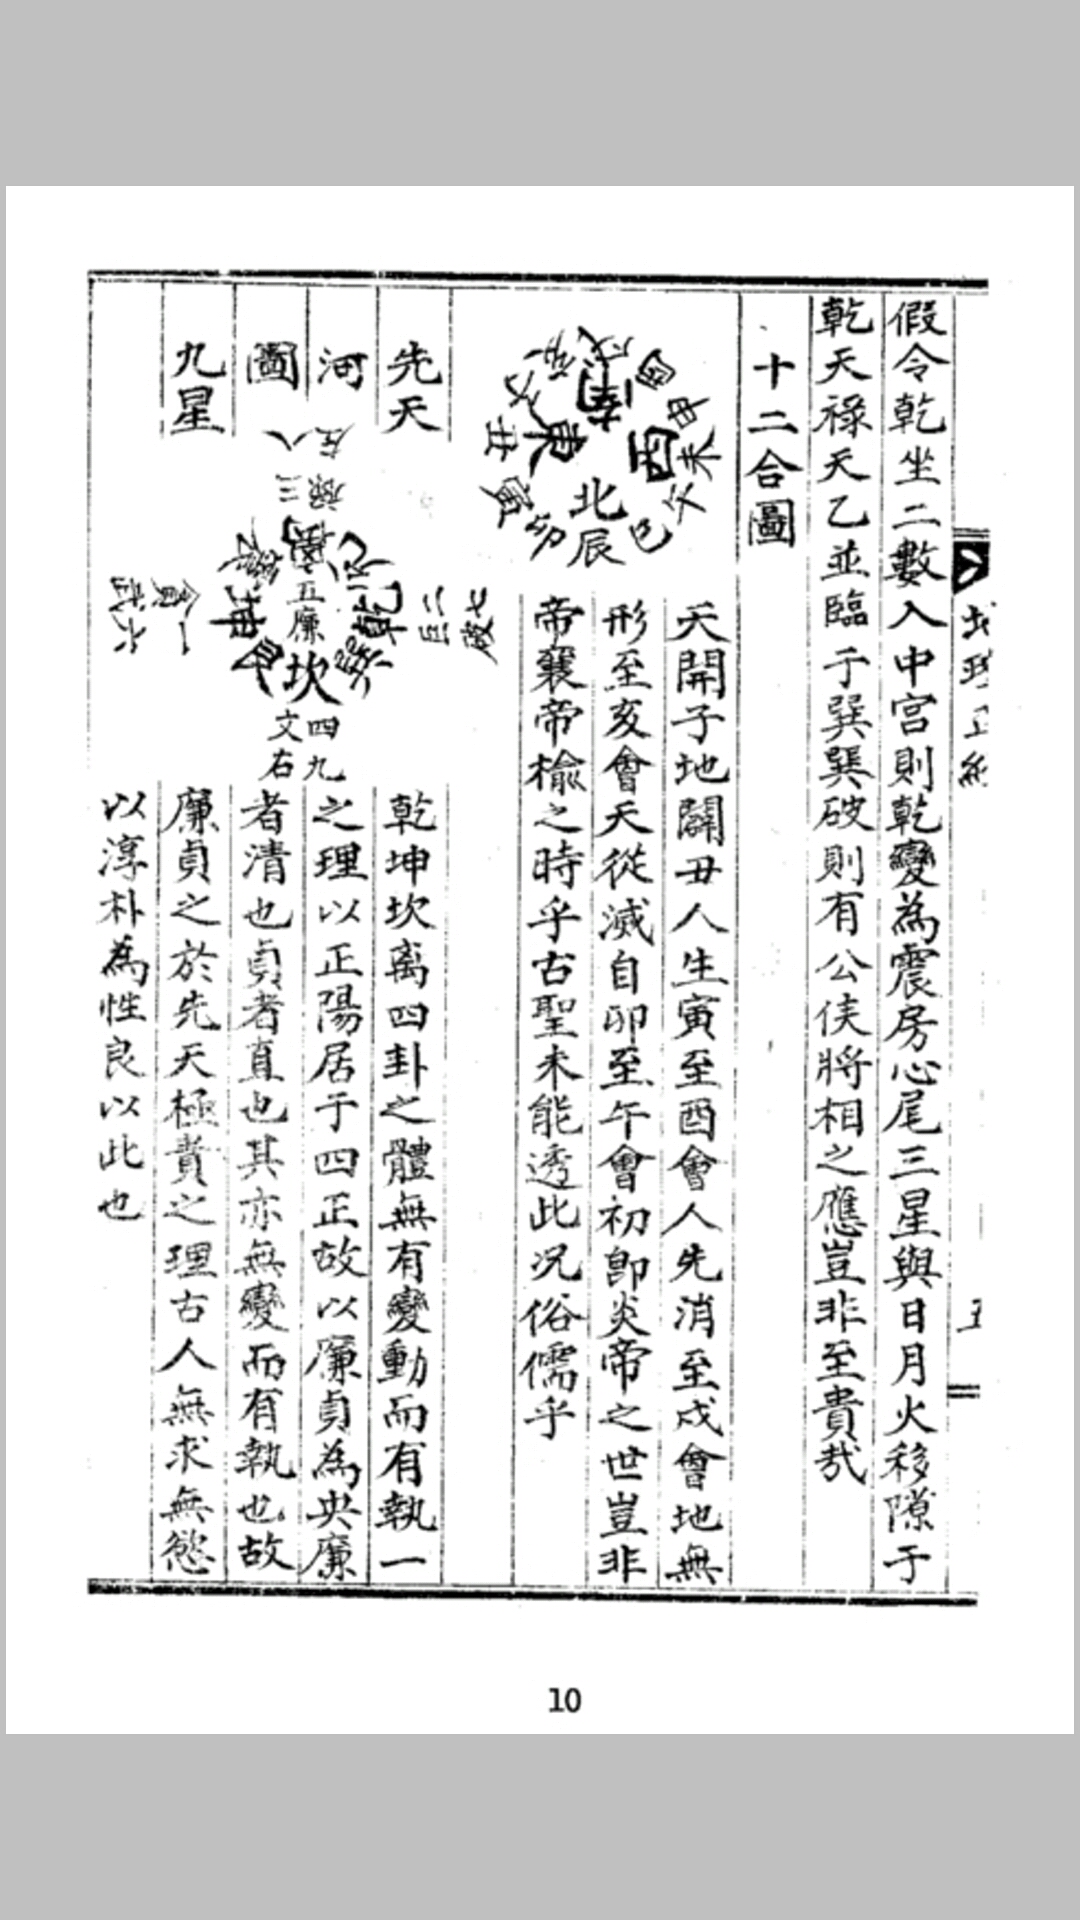 假令乾坐二數入中宮則乾變為震房心尾三星與日月火移隙于
乾天祿天乙並臨于巽巽破則有公侯將相之應豈非至貴哉
十二合圖
南
西
北
東
酉
申
未
午
巳
辰
卯
寅
丑
天開子地闢丑人生寅至酉會人先消至戌會地無
形至亥會天從滅自卯至午會初即炎帝之世豈非
帝襄帝榆之時乎古聖未能透此况俗儒乎
先天
河
圖
九星
左八
祿三
五廉
坎
乾
巨二
破七
貪一
武六
文四
右九
乾坤坎离四卦之體無有變動而有執一
之理以正陽居于四正故以廉貞為央廉
者清也貞者直也其亦無變而有執也故
廉貞之於先天極貴之理古人無求無慾
以淳朴為性良以此也
10